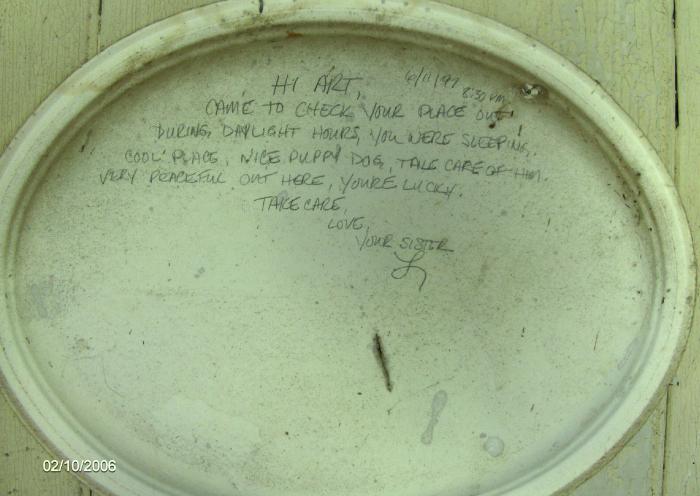 HI ART, 6/11/97
8:30 P.M.
CAME TO CHECK YOUR PLACE OUT
DURING, DAYLIGHT HOURS, YOU WERE SLEEPING.
COOL PLACE, NICE PUPPY DOG, TAKE CARE OF HIM.
VERY PEACEFUL OUT HERE, YOU'RE LUCKY.
TAKE CARE,
LOVE,
YOUR SISTER
L
02/10/2006